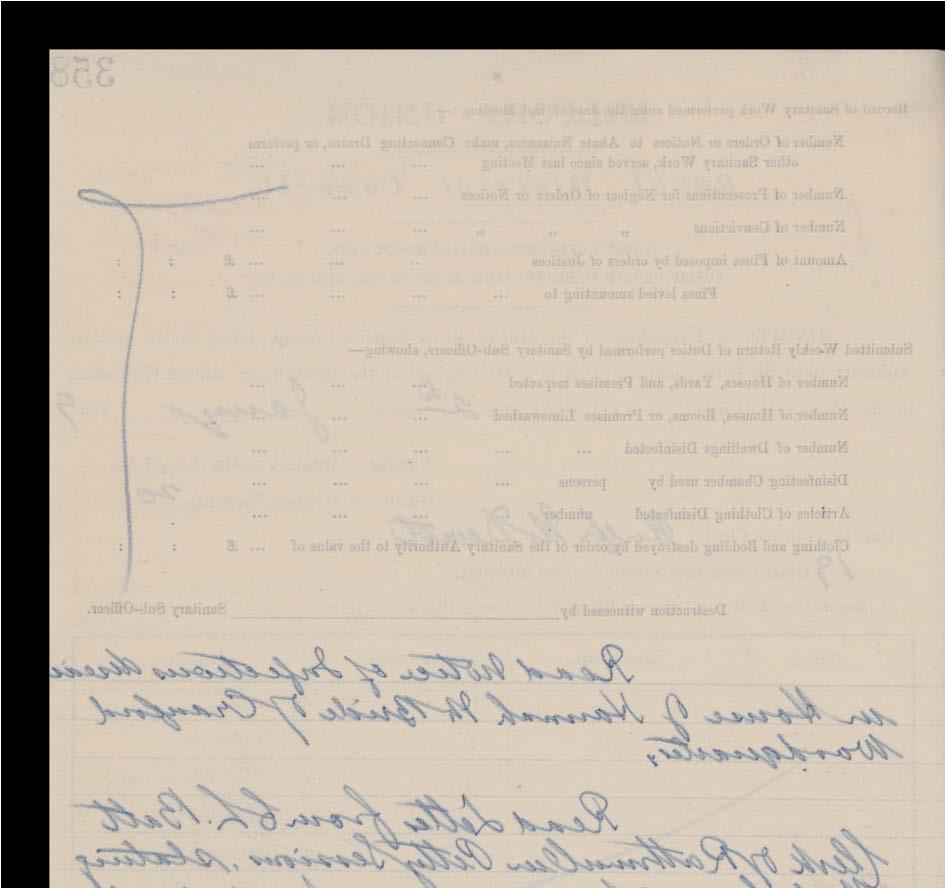 358
8
Record of Sanitary Work performed since the date of last Meeting :—
Number of Orders or Notices to Abate Nuisances, make Connecting Drains, or perform
other Sanitary Work, served since last Meeting ... ... ...
Number of Prosecutions for Neglect of Orders or Notices ... ... ...
Number of Convictions " " " ... ... ...
Amount of Fines imposed by orders of Justices ... ... £ : :
Fines levied amounting to ... ... ... ... £ : :
Submitted Weekly Return of Duties performed by Sanitary Sub-Officers, showing—
Number of Houses, Yards, and Premises inspected ... ... ...
Number of Houses, Rooms, or Premises Limewashed ... ... ...
Number of Dwellings Disinfected ... ... ... ... ...
Disinfecting Chamber used by persons ... ... ... ...
Articles of Clothing Disinfected number ... ... ... ...
Clothing and Bedding destroyed by order of the Sanitary Authority to the value of ... £ : :
Destruction witnessed by Sanitary Sub-Officer.
Read Notice of Infectious disease
in House of Hannah McBride of Cranford
Woodquarter.
Read Letter from C L. Batt
Clerk of Rathmullan Petty Sessions, stating